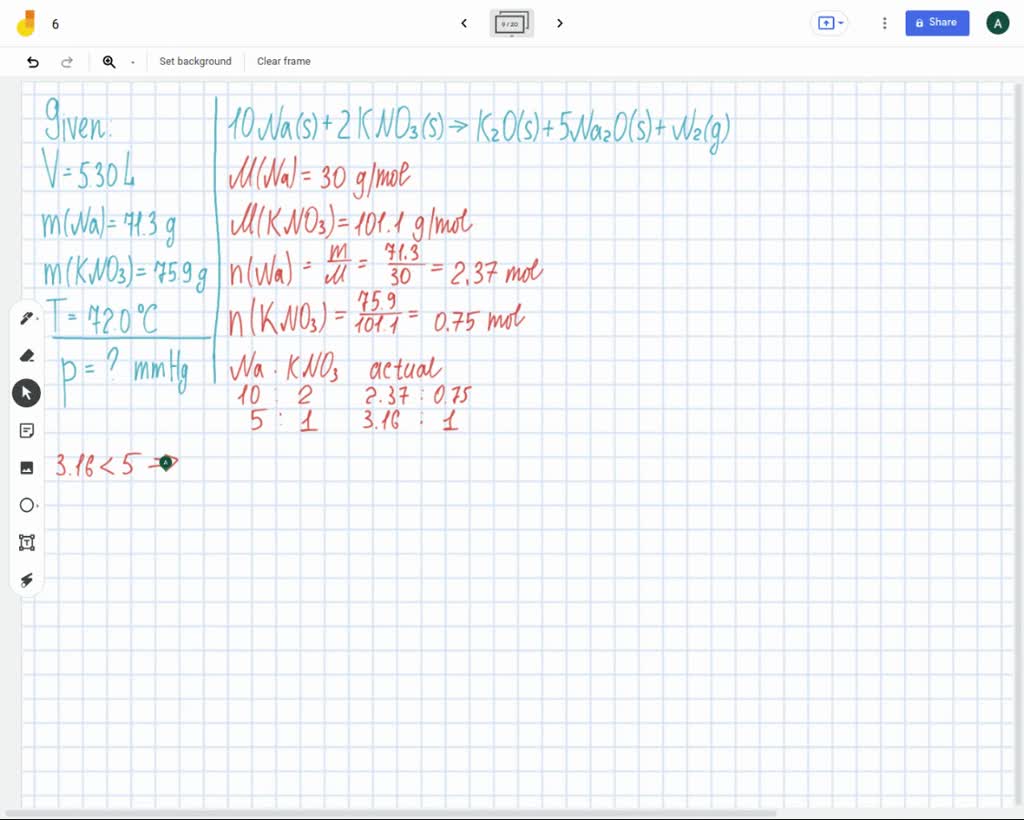 6
9 / 20
Share
A
Set background
Clear frame
Given:
V = 5.30 L
m(Na) = 71.3 g
m(KNO₃) = 75.9 g
T = 72.0 °C
p = ? mmHg
10Na(s) + 2KNO₃(s) → K₂O(s) + 5Na₂O(s) + N₂(g)
M(Na) = 30 g/mol
M(KNO₃) = 101.1 g/mol
n(Na) = m/M = 71.3/30 = 2.37 mol
n(KNO₃) = 75.9/101.1 = 0.75 mol
Na : KNO₃ actual
10 : 2 2.37 : 0.75
5 : 1 3.16 : 1
3.16 < 5 ⇒
A